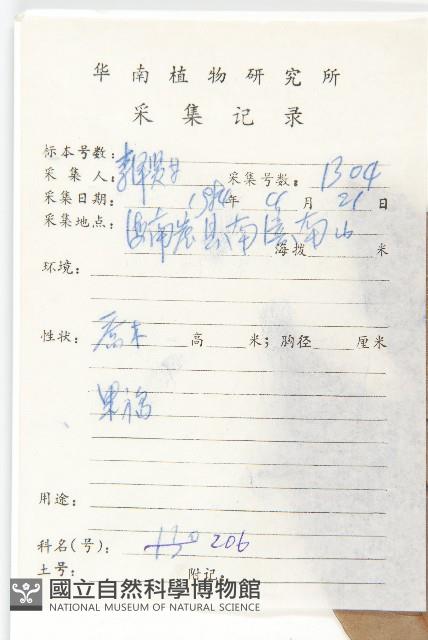 华南植物研究所
采集记录
标本号数:
采集人: 采集号数: 1304
采集日期: 年 月 21 日
采集地点: 海南 县南
海拔 米
环境:
性状: 喬木 高 米; 胸径 厘米
果
用途:
科名(号): 130 206
土号: 附记:
國立自然科學博物館
NATIONAL MUSEUM OF NATURAL SCIENCE